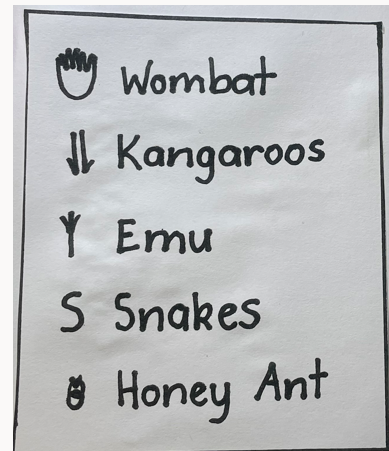 Wombat
Kangaroos
Emu
S Snakes
Honey Ant